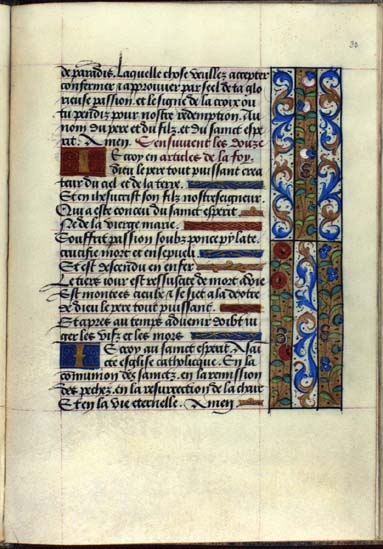 de paradis. Laquelle chose veullez accepter
confermer & approuver par seel de ta glo
rieuse passion. et le signe de la croix ou
tu pendiz pour nostre redemption. Au
nom du pere et du filz. et du sainct espe
rit. Amen. Sensuivent les douze
Je croy en articles de la foy.
dieu le pere tout puissant crea
teur du ciel et de la terre.
Et en ihesucrist son filz nostreseigneur.
Qui a este conceu du sainct esperit.
Ne de la vierge marie.
Souffrit passion soubz ponce pylate.
crucifie mort et ensepueli
Et est descendu en enfer
Le tiers iour est ressuscite de mort. done
Est monte es cieulx & se siet a la dextre
de dieu le pere tout puissant.
Et apres au temps advenir doibt iu
ger les vifz et les mors
Je croy au sainct esperit. La sai
cte esglise catholicque. En la
communion des sainctz. en la remission
des pechez. en la resurrection de la chair
Et en la vie eternelle. Amen